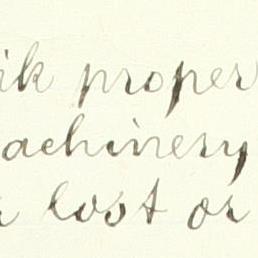 ik proper
achinery
lost or